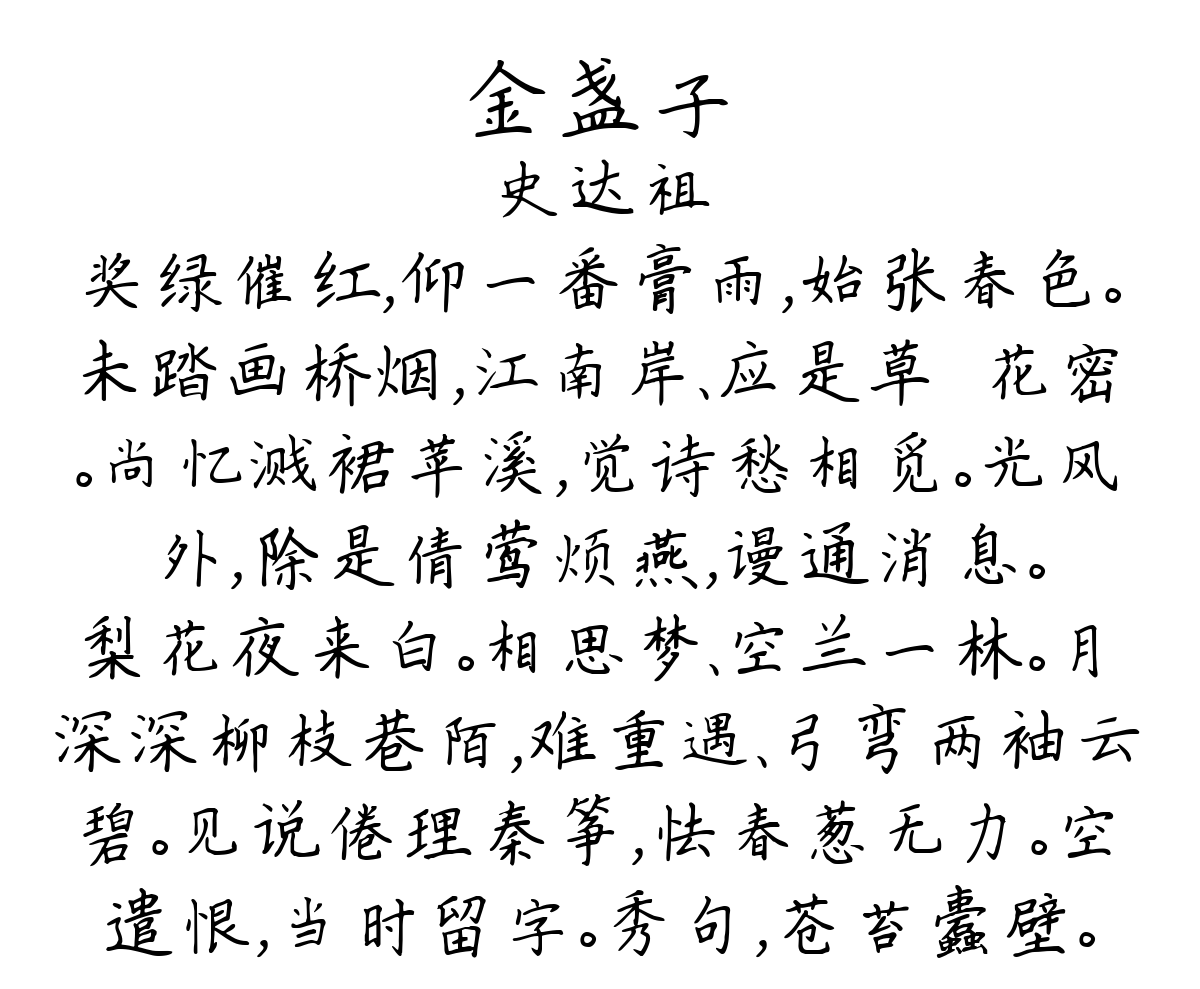 金盏子
史达祖
奖绿催红,仰一番膏雨,始张春色。
未踏画桥烟,江南岸、应是草 花密
。尚忆溅裙苹溪,觉诗愁相觅。光风
外,除是倩莺烦燕,谩通消息。
梨花夜来白。相思梦、空兰一林。月
深深柳枝巷陌,难重遇、弓弯两袖云
碧。见说倦理秦筝,怯春葱无力。空
遣恨,当时留字。秀句,苍苔蠹壁。